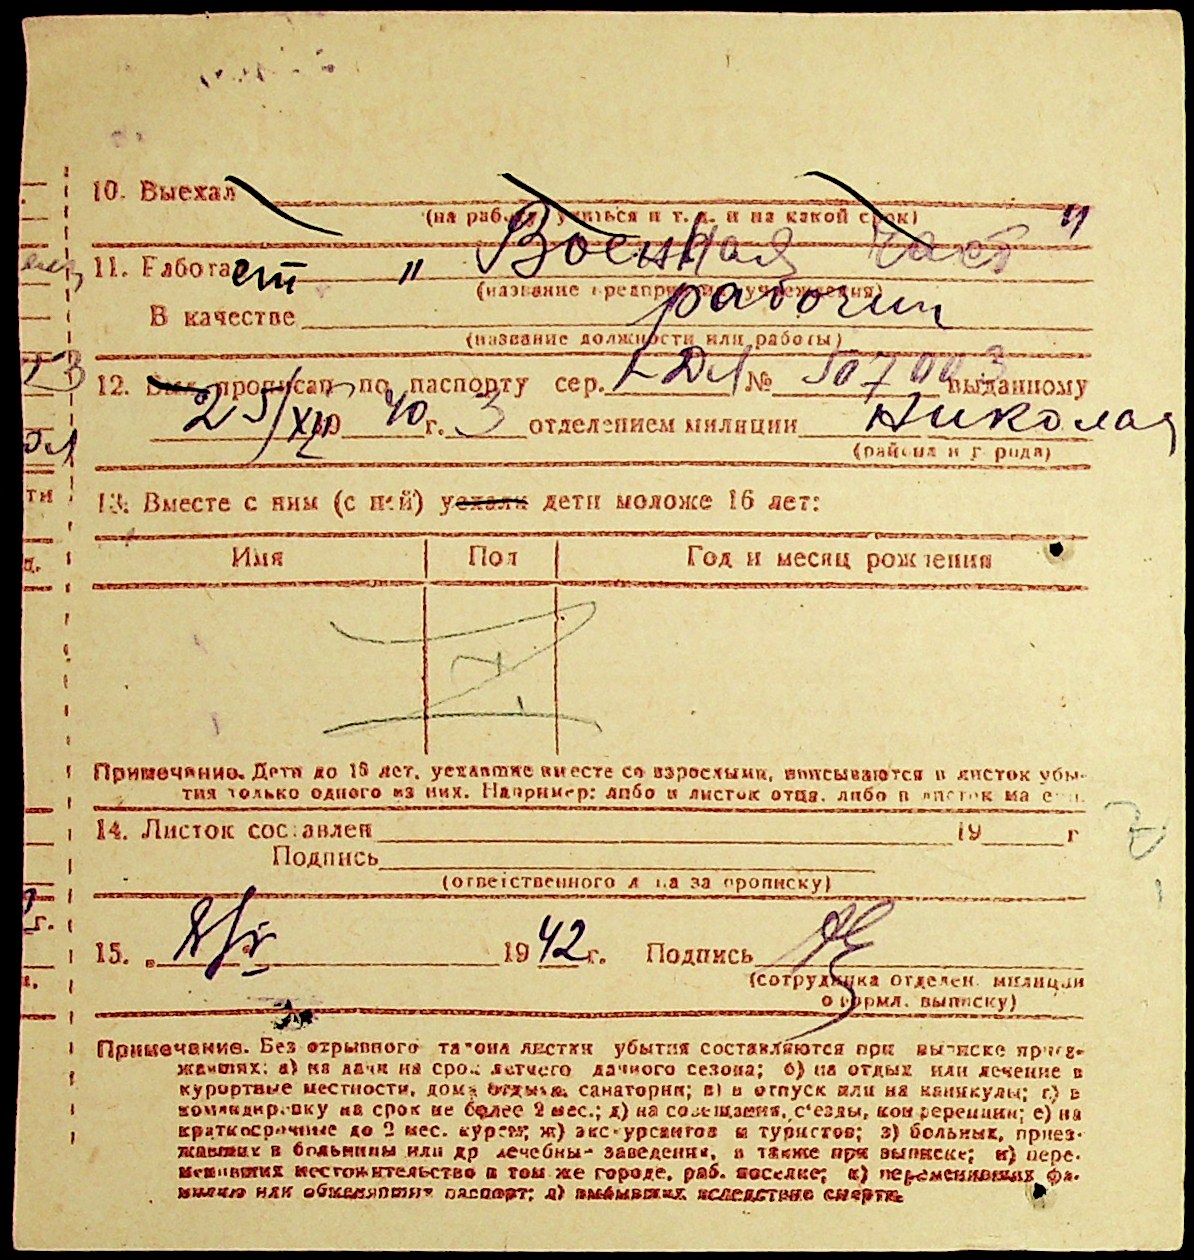 10. Выехал
(на работу, учиться и т. д. и на какой срок)
11. Работает " Военная част "
(название предприятия, учреждения)
В качестве рабочий
(название должности или работы)
12. Был прописан по паспорту сер. № 507003 выданному
25/XII 1940 г. 3 отделением милиции Николая
(района и города)
13. Вместе с ним (с ней) уехали дети моложе 16 лет:
Имя Пол Год и месяц рождения
Примечание. Дети до 16 лет, уехавшие вместе со взрослыми, вписываются в листок убы-
тия только одного из них. Например: либо в листок отца, либо в листок матери.
14. Листок составлен 19 г
Подпись
(ответственного лица за прописку)
15. 1942 г. Подпись
(сотрудника отделен. милиции
оформл. выписку)
Примечание. Без отрывного талона листки убытия составляются при выписке приез-
жавших: а) на дачи на срок летнего дачного сезона; б) на отдых или лечение в
курортные местности, дома отдыха, санатории; в) в отпуск или на каникулы; г) в
командировку на срок не более 2 мес.; д) на совещания, с'езды, конференции; е) на
краткосрочные до 2 мес. курсы; ж) экскурсантов и туристов; з) больных, приез-
жавших в больницы или др лечебны- заведения, а также при выписке; и) пере-
менивших местожительство в том же городе, раб. поселке; к) переменивших фа-
милию или обменявших паспорт; л) выбывших вследствие смерти.